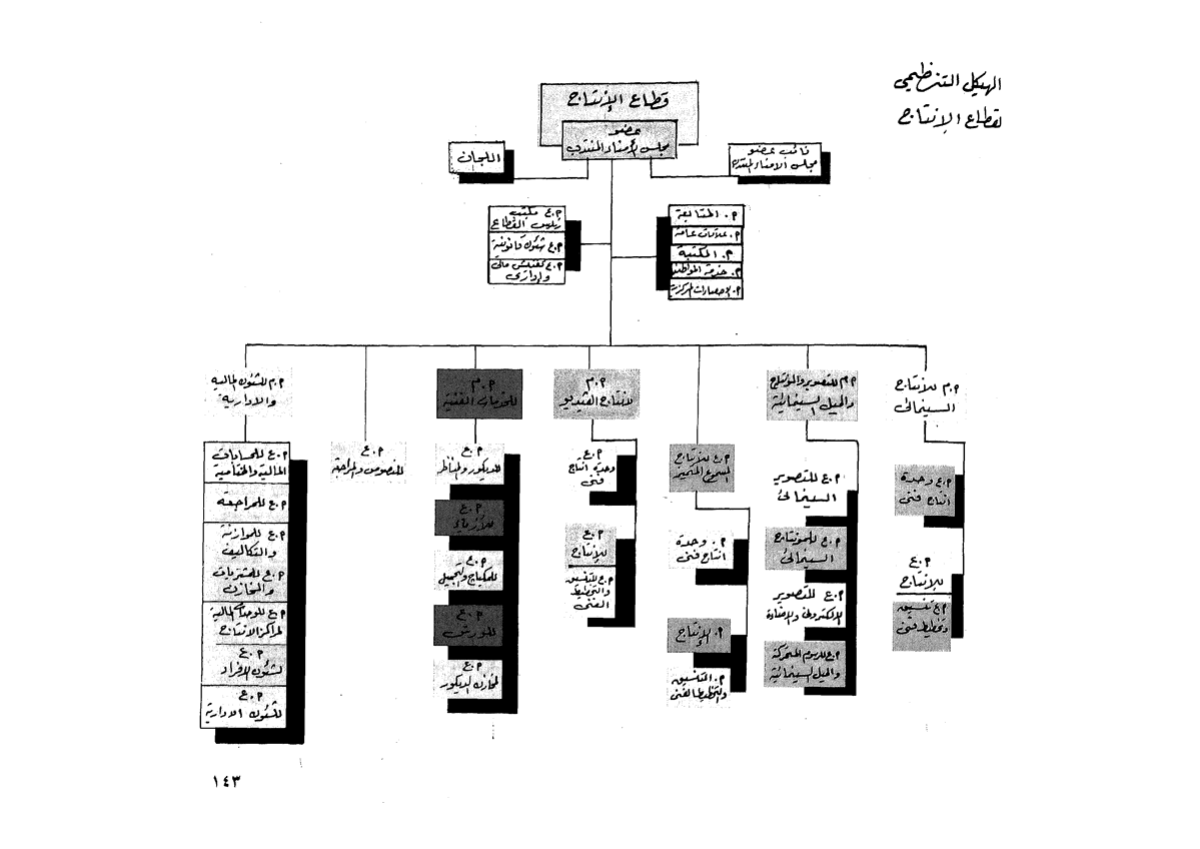 الهيكل التنظيمي
لقطاع الإنتاج
قطاع الإنتاج
عضو
مجلس الأمناء المنتدب
اللجان
نائب عضو
مجلس الأمناء المنتدب
م.ع مكتب
رئيس القطاع
م.ع شئون قانونية
م.ع تفتيش مالى
وإدارى
م. المتابعة
م. علاقات عامة
م. المكتبة
م. خدمة المواطنين
م. الإحصاءات المركزية
م.م للإنتاج
السينمائى
م.ع وحدة
إنتاج فنى
م.ع
للإنتاج
م.ع تنسيق
وتخطيط فنى
م.م للتصوير والمونتاج
والحيل السينمائية
م.ع للتصوير
السينمائى
م.ع للمونتاج
السينمائى
م.ع للتصوير
الإلكترونى والإضاءة
م.ع للرسوم المتحركة
والحيل السينمائية
م.ع للإنتاج
المسموع المتميز
م. وحدة
إنتاج فنى
م. الإنتاج
م. التنسيق
والتخطيط الفنى
م.م
لإنتاج الفيديو
م.ع
وحدة إنتاج
فنى
م.ع
للإنتاج
م.ع للتنسيق
والتخطيط
الفنى
م.م
للخدمات الفنية
م.ع
للديكور والمناظر
م.ع
للأزياء
م.ع
للمكياج والتجميل
م.ع
للورش
م.ع
لمخازن الديكور
م.ع
للنصوص والمراجعة
م.م للشئون المالية
والادارية
م.ع للحسابات
المالية والختامية
م.ع للمراجعة
م.ع للموازنة
والتكاليف
م.ع للمشتريات
والمخازن
م.ع للوحدات المالية
لمراكز الإنتاج
م.ع
لشئون الأفراد
م.ع
للشئون الادارية
١٤٣